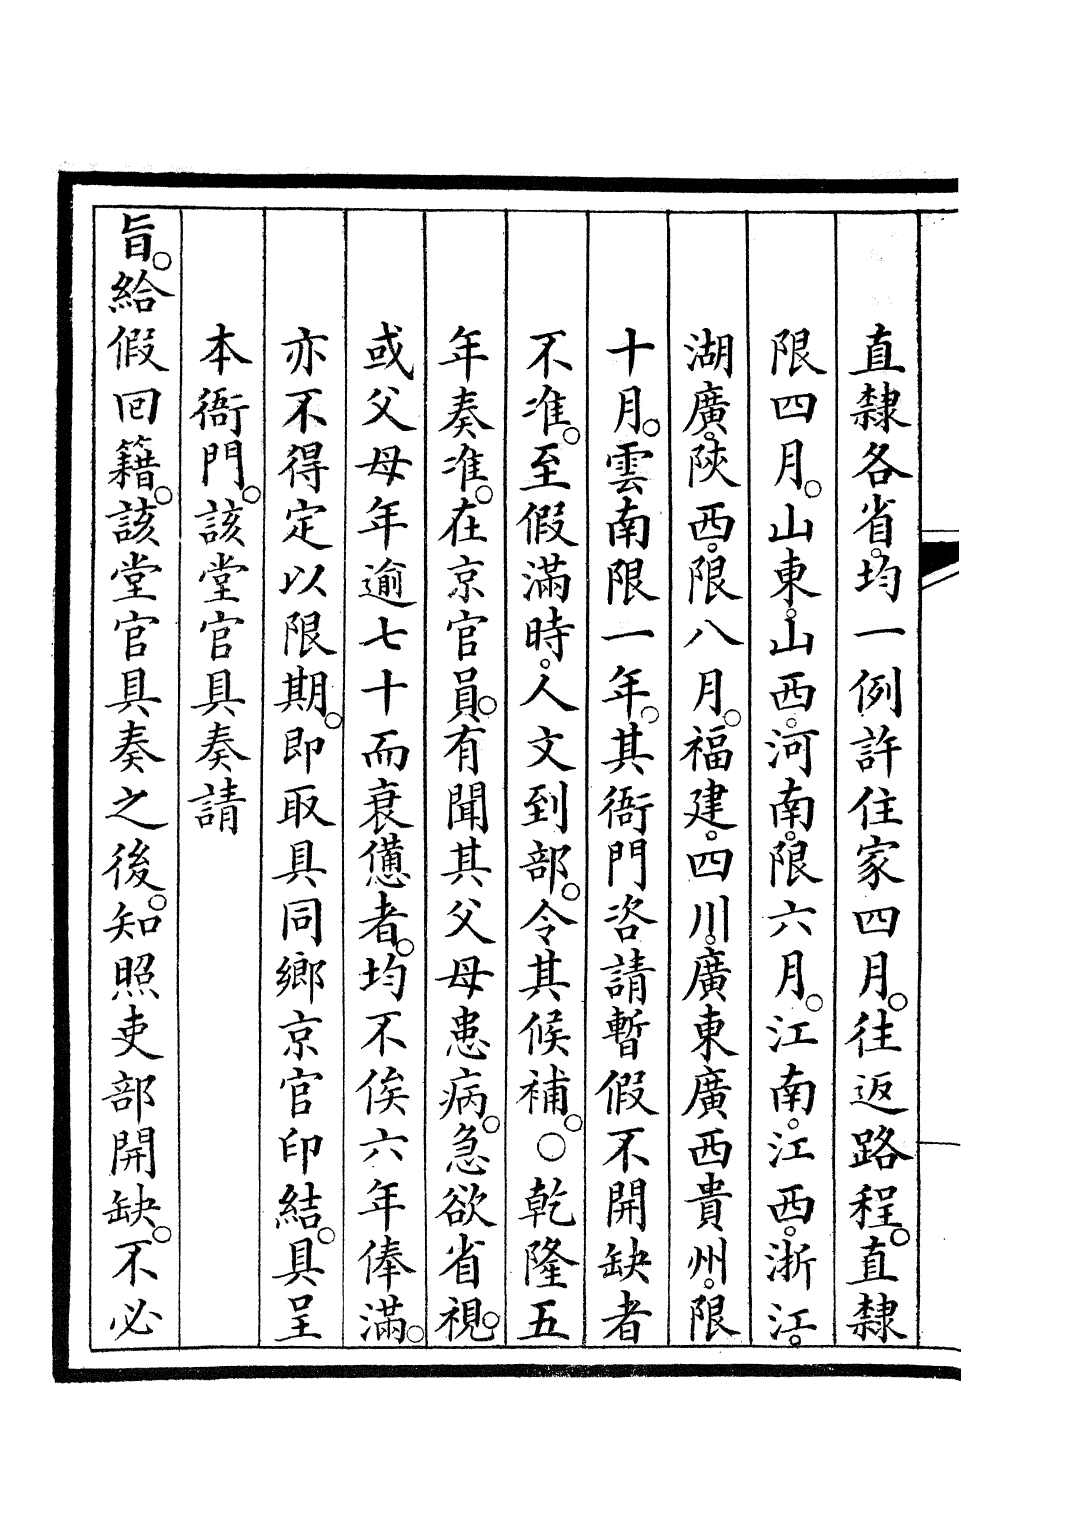 直隸各省。均一例許住家四月。往返路程。直隸
限四月。山東。山西。河南。限六月。江南。江西。浙江。
湖廣。陝西。限八月。福建。四川。廣東廣西貴州。限
十月。雲南限一年。其衙門咨請暫假不開缺者
不准。至假滿時。人文到部。令其候補。○乾隆五
年奏准。在京官員。有聞其父母患病。急欲省視。
或父母年逾七十而衰憊者。均不俟六年俸滿。
亦不得定以限期。即取具同鄉京官印結。具呈
本衙門。該堂官具奏請
旨。給假回籍。該堂官具奏之後。知照吏部開缺。不必